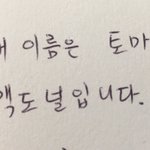 이름은 토마
맥도널입니다.